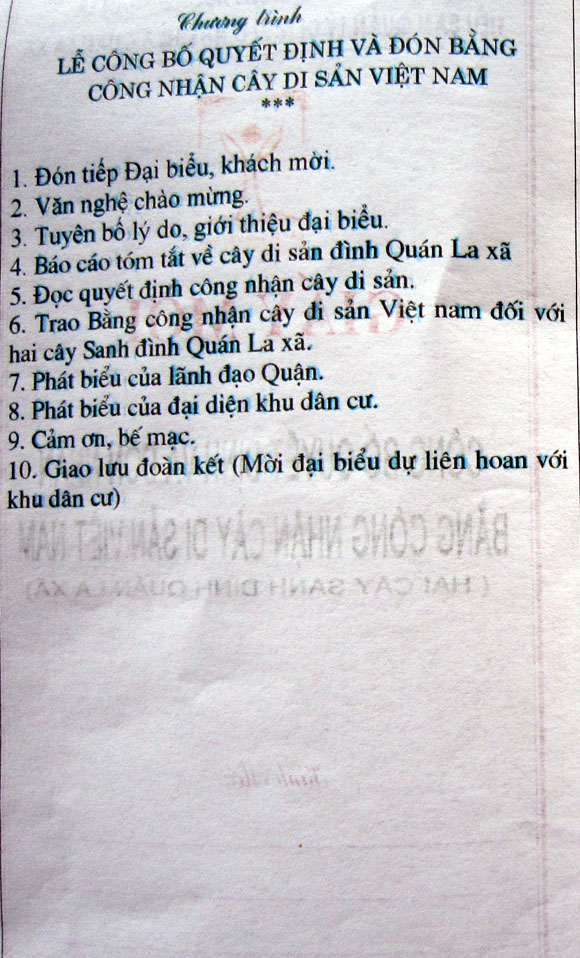 Chương trình
LỄ CÔNG BỐ QUYẾT ĐỊNH VÀ ĐÓN BẰNG
CÔNG NHẬN CÂY DI SẢN VIỆT NAM
***
1. Đón tiếp Đại biểu, khách mời.
2. Văn nghệ chào mừng.
3. Tuyên bố lý do, giới thiệu đại biểu.
4. Báo cáo tóm tắt về cây di sản đình Quán La xã
5. Đọc quyết định công nhận cây di sản.
6. Trao Bằng công nhận cây di sản Việt nam đối với
hai cây Sanh đình Quán La xã.
7. Phát biểu của lãnh đạo Quận.
8. Phát biểu của đại diện khu dân cư.
9. Cảm ơn, bế mạc.
10. Giao lưu đoàn kết (Mời đại biểu dự liên hoan với
khu dân cư)
GIẤY MỜI
CÔNG BỐ QUYẾT ĐỊNH
BẰNG CÔNG NHẬN CÂY DI SẢN VIỆT NAM
( HAI CÂY SANH ĐÌNH QUÁN LA XÃ)